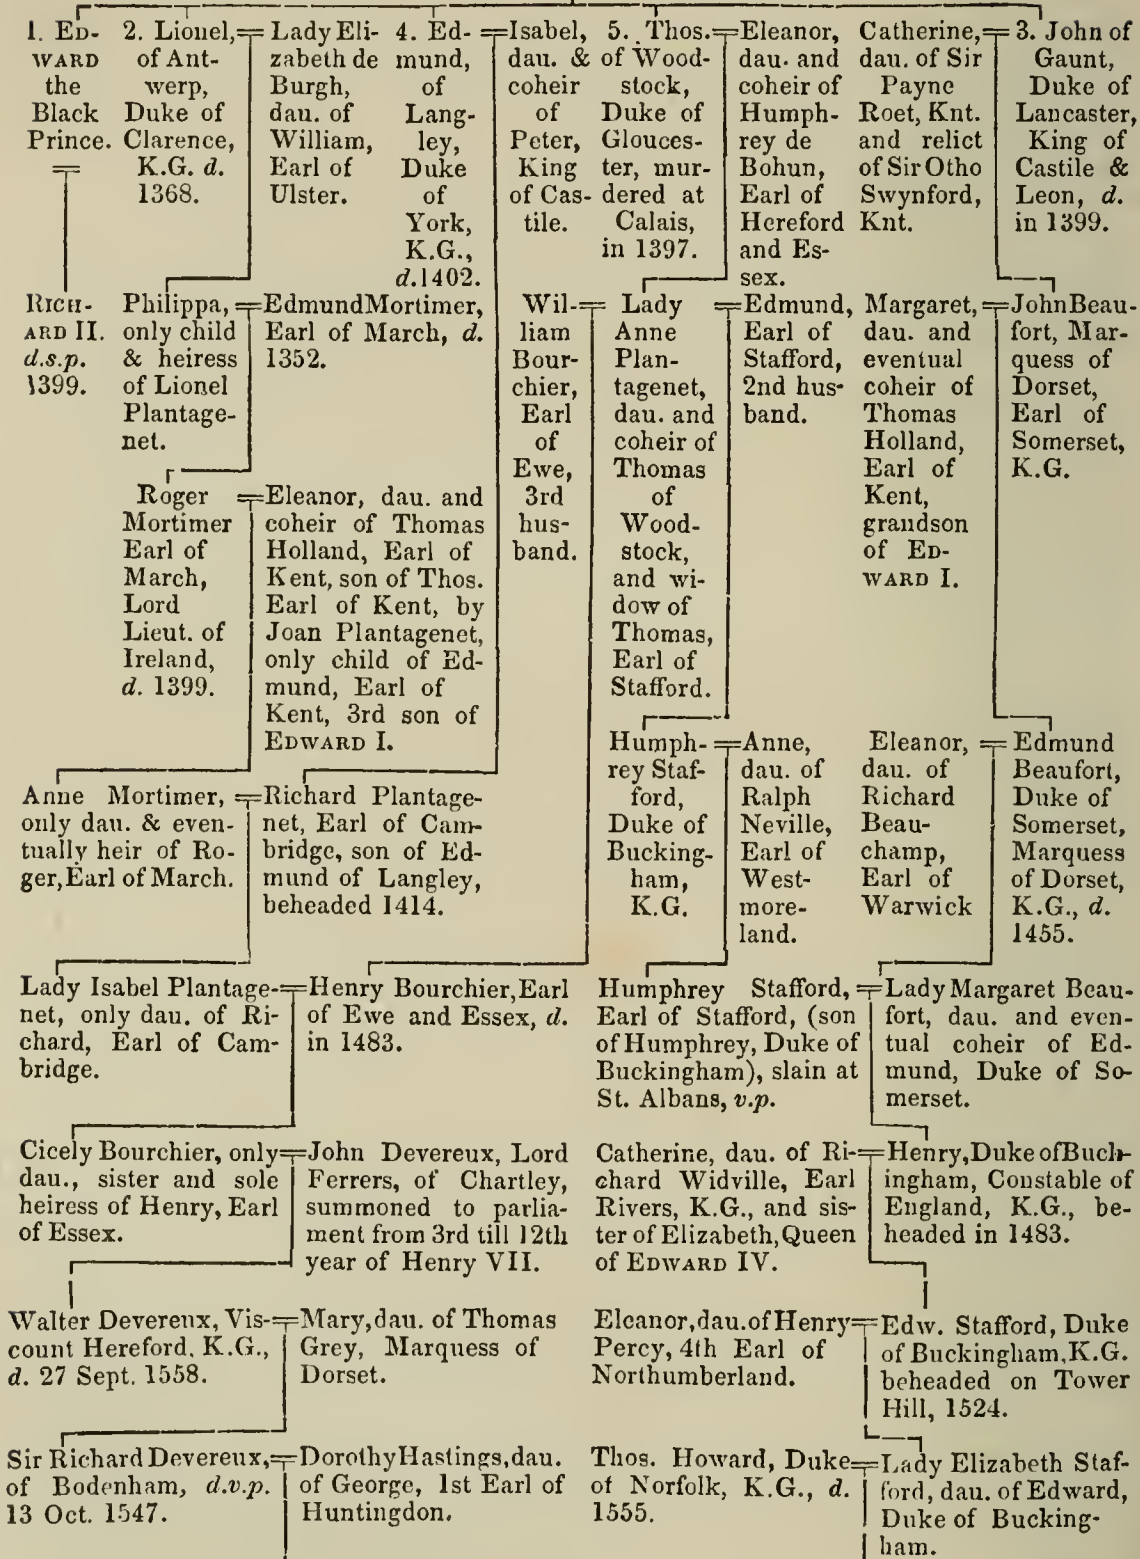 1. EDWARD
the
Black
Prince.
2. Lionel,
of Ant-
werp,
Duke of
Clarence,
K.G. d.
1368.
Lady Eli-
zabeth de
Burgh,
dau. of
William,
Earl of
Ulster.
4. Ed-
mund,
of
Lang-
ley,
Duke
of
York,
K.G.,
d.1402.
Isabel,
dau. &
coheir
of
Peter,
King
of Cas-
tile.
5. Thos.
of Wood-
stock,
Duke of
Glouces-
ter, mur-
dered at
Calais,
in 1397.
Eleanor,
dau. and
coheir of
Humph-
rey de
Bohun,
Earl of
Hereford
and Es-
sex.
Catherine,
dau. of Sir
Payne
Roet, Knt.
and relict
of Sir Otho
Swynford,
Knt.
3. John of
Gaunt,
Duke of
Lancaster,
King of
Castile &
Leon, d.
in 1399.
RICH-
ARD II.
d.s.p.
1399.
Philippa,
only child
& heiress
of Lionel
Plantage-
net.
Edmund Mortimer,
Earl of March, d.
1352.
Wil-
liam
Bour-
chier,
Earl
of
Ewe,
3rd
hus-
band.
Lady
Anne
Plan-
tagenet,
dau. and
coheir of
Thomas
of
Wood-
stock,
and wi-
dow of
Thomas,
Earl of
Stafford.
Edmund,
Earl of
Stafford,
2nd hus-
band.
Margaret,
dau. and
eventual
coheir of
Thomas
Holland,
Earl of
Kent,
grandson
of ED-
WARD I.
John Beau-
fort, Mar-
quess of
Dorset,
Earl of
Somerset,
K.G.
Roger
Mortimer
Earl of
March,
Lord
Lieut. of
Ireland,
d. 1399.
Eleanor, dau. and
coheir of Thomas
Holland, Earl of
Kent, son of Thos.
Earl of Kent, by
Joan Plantagenet,
only child of Ed-
mund, Earl of
Kent, 3rd son of
EDWARD I.
Humph-
rey Staf-
ford,
Duke of
Bucking-
ham,
K.G.
Anne,
dau. of
Ralph
Neville,
Earl of
West-
more-
land.
Eleanor,
dau. of
Richard
Beau-
champ,
Earl of
Warwick
Edmund
Beaufort,
Duke of
Somerset,
Marquess
of Dorset,
K.G., d.
1455.
Anne Mortimer,
only dau. & even-
tually heir of Ro-
ger, Earl of March.
Richard Plantage-
net, Earl of Cam-
bridge, son of Ed-
mund of Langley,
beheaded 1414.
Lady Isabel Plantage-
net, only dau. of Ri-
chard, Earl of Cam-
bridge.
Henry Bourchier, Earl
of Ewe and Essex, d.
in 1483.
Humphrey Stafford,
Earl of Stafford, (son
of Humphrey, Duke of
Buckingham), slain at
St. Albans, v.p.
Lady Margaret Beau-
fort, dau. and even-
tual coheir of Ed-
mund, Duke of So-
merset.
Cicely Bourchier, only
dau., sister and sole
heiress of Henry, Earl
of Essex.
John Devereux, Lord
Ferrers, of Chartley,
summoned to parlia-
ment from 3rd till 12th
year of Henry VII.
Catherine, dau. of Ri-
chard Widville, Earl
Rivers, K.G., and sis-
ter of Elizabeth, Queen
of EDWARD IV.
Henry, Duke of Buck-
ingham, Constable of
England, K.G., be-
headed in 1483.
Walter Devereux, Vis-
count Hereford, K.G.,
d. 27 Sept. 1558.
Mary, dau. of Thomas
Grey, Marquess of
Dorset.
Eleanor, dau. of Henry
Percy, 4th Earl of
Northumberland.
Edw. Stafford, Duke
of Buckingham, K.G.
beheaded on Tower
Hill, 1524.
Sir Richard Devereux,
of Bodenham, d.v.p.
13 Oct. 1547.
Dorothy Hastings, dau.
of George, 1st Earl of
Huntingdon.
Thos. Howard, Duke
of Norfolk, K.G., d.
1555.
Lady Elizabeth Staf-
ford, dau. of Edward,
Duke of Bucking-
ham.